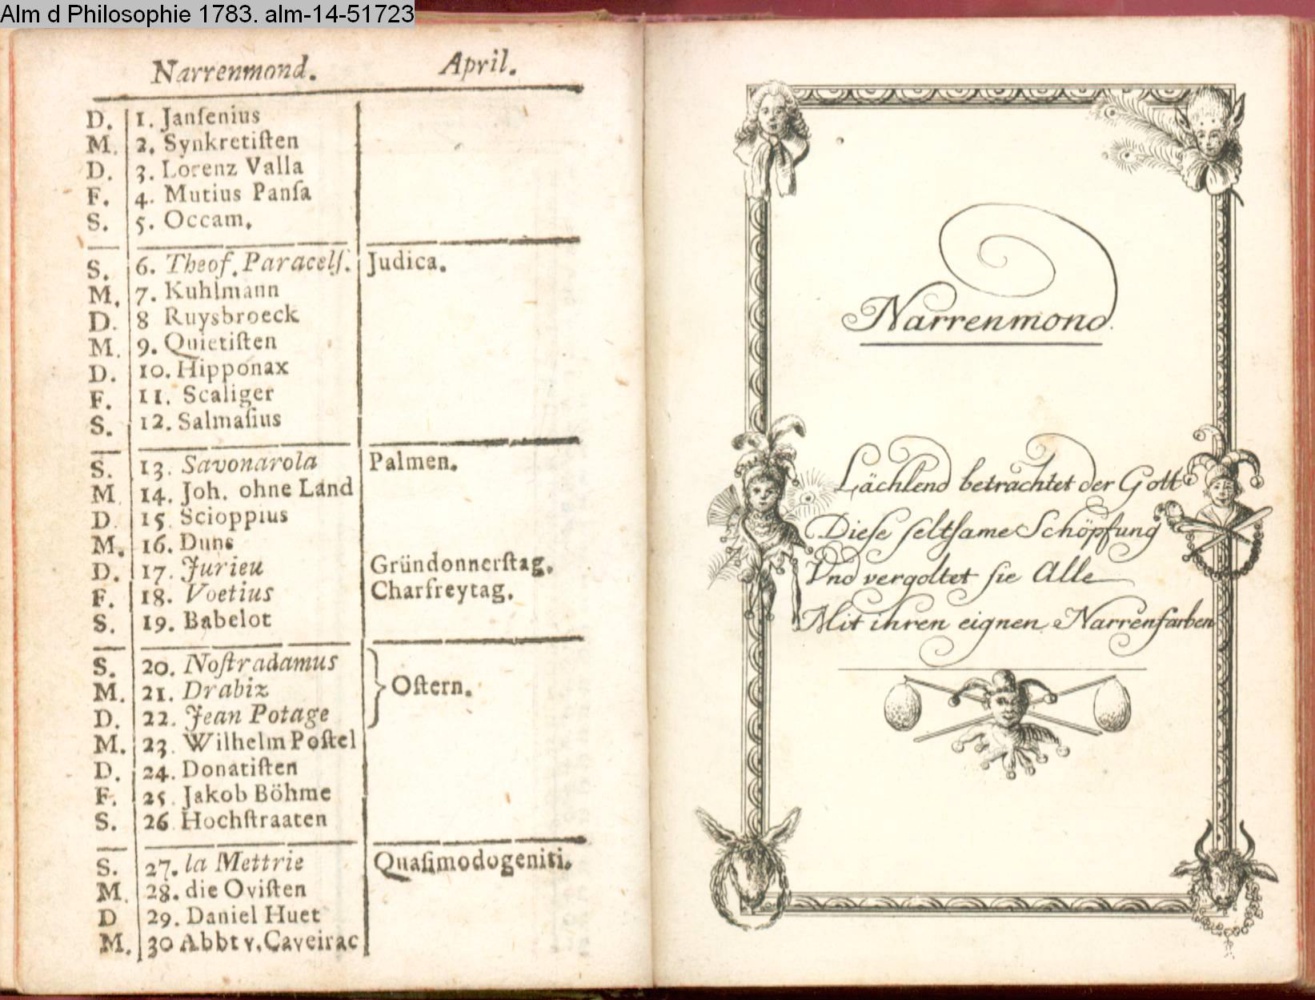 Alm d Philosophie 1783. alm-14-51723
Narrenmond. April.
D. 1. Janſenius
M. 2. Synkretiſten
D. 3. Lorenz Valla
F. 4. Mutius Panſa
S. 5. Occam.
S. 6. Theof. Paracelſ. Judica.
M. 7. Kuhlmann
D. 8 Ruysbroeck
M. 9. Quietiſten
D. 10. Hipponax
F. 11. Scaliger
S. 12. Salmaſius
S. 13. Savonarola Palmen.
M 14. Joh. ohne Land
D. 15 Scioppius
M. 16. Duns
D. 17. Jurieu Gründonnerſtag.
F. 18. Voetius Charfreytag.
S. 19. Babelot
S. 20. Noſtradamus
M. 21. Drabiz Oſtern.
D. 22. Jean Potage
M. 23. Wilhelm Poſtel
D. 24. Donatiſten
F. 25. Jakob Böhme
S. 26 Hochſtraaten
S. 27. la Mettrie Quaſimodogeniti.
M. 28. die Oviſten
D 29. Daniel Huet
M. 30 Abbt v. Caveirac
Narrenmond.
Lächlend betrachtet der Gott
Dieſe ſeltſame Schöpfung
Vnd vergoltet ſie Alle
Mit ihren eignen Narrenfarben